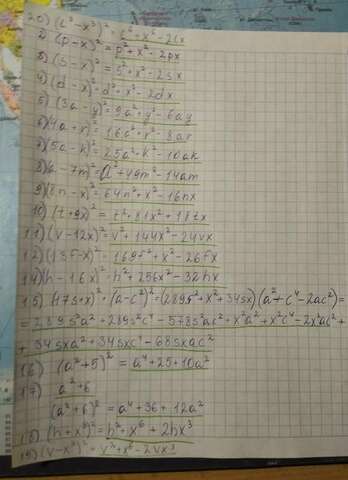 20) (t³-x³)²=t⁶+x⁶-2tx
2) (p-x)²=p²+x²-2px
3) (s-x)²=s²+x²-2sx
4) (d-x)=d²+x²-2dx
5) (3a-y)²=9a²+y²-6ay
6) (4a-r)²=16a²+r²-8ar
7) (5a-k)²=25a²+k²-10ak
-7m)²=a²+49m²-14am
9) (8n-x)²=64n²+x²-16nx
10) (t+9x)²=t²+81x²+18tx
11) (v-12x)²=v²+144x²-24vx
12) (13f-x)²=169f²+x²-26fx
14) (h-16x)²=h²+256x²-32hx
15) (17s+x)²·(a-c²)²=(289s²+x²+34sx)(a²+c⁴-2ac²)=
=289s²a²+289s²c⁴-578s²ac²+x²a²+x²c⁴-2x²ac²+
+34sxa²+34sxc⁴-68sxac²
16) (a²+5)²=a⁴+25+10a²
17) a²+6
(a²+6)²=a⁴+36+12a²
18) (h+x³)²=h²+x⁶+2hx³
19) (v-x³)²=v²+x⁶-2vx³